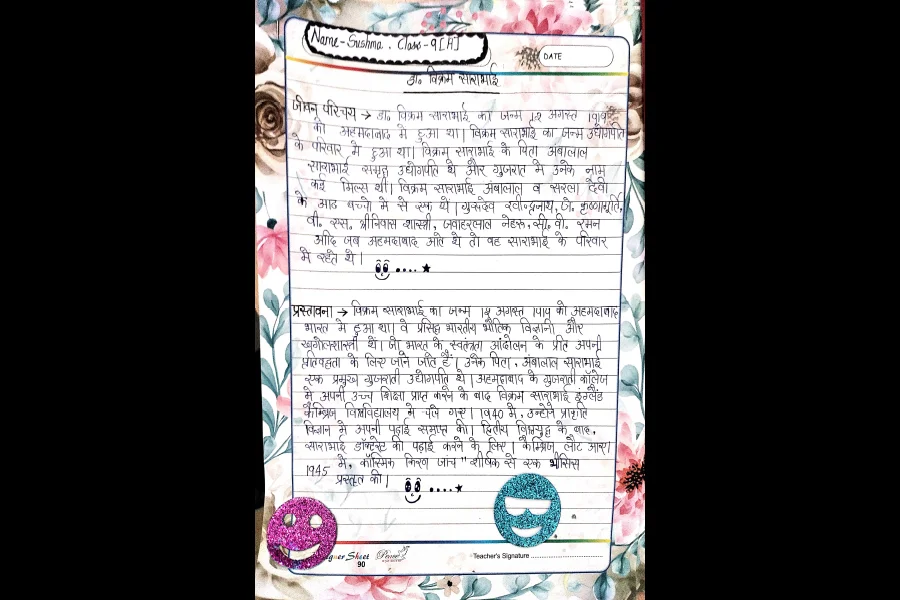 Name - Sushma . Class - 9 [A]
DATE
डॉ. विक्रम साराभाई
जीवन परिचय → डॉ. विक्रम साराभाई का जन्म 12 अगस्त
को अहमदाबाद मे हुआ था। विक्रम साराभाई का जन्म उद्योगपति
के परिवार मे हुआ था। विक्रम साराभाई के पिता अंबालाल
साराभाई समृद्ध उद्योगपति थे और गुजरात मे उनके नाम
कई मिल्स थी। विक्रम साराभाई अंबालाल व सरला देवी
के आठ बच्चो मे से एक थें। गुरुदेव रवीन्द्रनाथ, जे. कृष्णामूर्ति,
वी. एस. श्रीनिवास शास्त्री, जवाहरलाल नेहरू, सी. वी. रमन
आदि जब अहमदाबाद आते थे तो वह साराभाई के परिवार
में रहते थे।
प्रस्तावना → विक्रम साराभाई का जन्म 12 अगस्त 1919 को अहमदाबाद
भारत मे हुआ था। वे प्रसिद्ध भारतीय भौतिक विज्ञानी और
खगोलशास्त्री थें। जो भारत के स्वतंत्रता आंदोलन के प्रति अपनी
प्रतिबद्धता के लिए जाने जाते हैं। उनके पिता, अंबालाल साराभाई
एक प्रमुख गुजराती उद्योगपति थे। अहमदाबाद के गुजराती कॉलेज
मे अपनी उच्च शिक्षा प्राप्त करने के बाद विक्रम साराभाई इंग्लैंड
कैम्ब्रिज विश्वविद्यालय मे चले गए। 1940 मे, उन्होने प्राकृति
विज्ञान मे अपनी पढ़ाई समाप्त की। द्वितीय विश्वयुद्ध के बाद,
साराभाई डॉक्टरेट की पढ़ाई करने के लिए। कैम्ब्रिज लौट आए।
1945 मे, कॉस्मिक किरण जांच" शीर्षक से एक थीसिस
प्रस्तुत की।
Sheet
90
Teacher's Signature